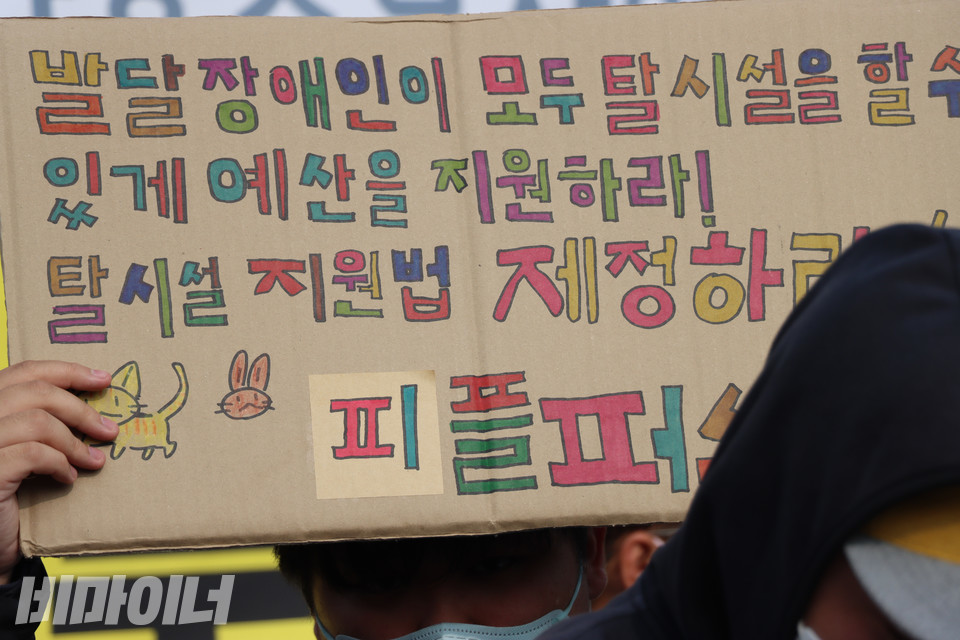 발달장애인이 모두 탈시설을 할 수
있게 예산을 지원하라!
탈시설 지원법 제정하라
피플퍼스
비마이너